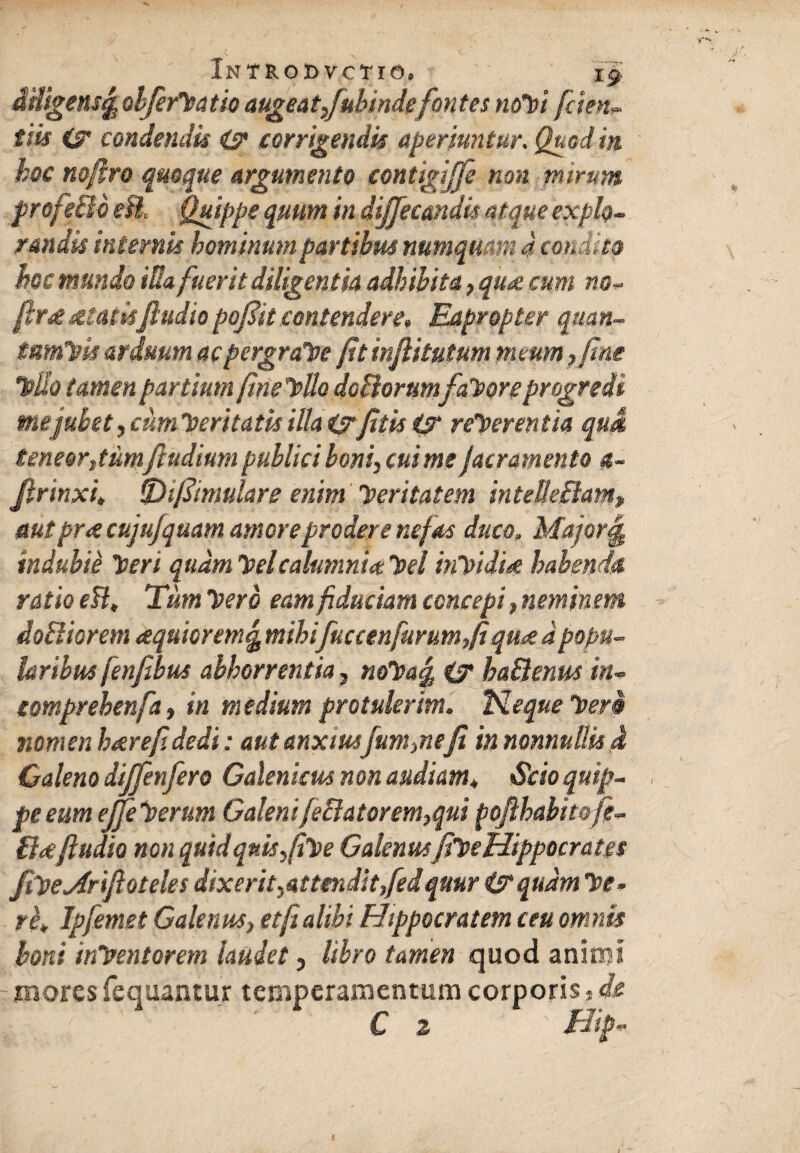 INTRODVCTIO. 19
diligensq; observatio augeat, subinde fontes novi scien-
tiis & condendis & corrigendis aperiuntur. Quod in
hoc nostro quoque argumento contigisse non mirum
profectò est. Quippe quum in dissecandis atque explo-
randis internis hominum partibus numquam à condito
hoc mundo illa fuerit diligentia adhibita, quæ cum no-
stræ ætatis studio possit contendere. Eapropter quan-
tumvis arduum ac pergrave sit institutum meum, sine
vllo tamen partium sine vllo doctorum favore progredi
me jubet, cùm veritatis illa & sitis & reverentia quâ
teneor, tùm studium publici boni, cui me sacramento a-
strinxi. Dissimulare enim veritatem intellectam,
aut præ cujusquam amore prodere nefas duco. Majorq;
indubiè veri quàm vel calumniæ vel invidiæ habenda
ratio est. Tùm verò eam fiduciam concepi, neminem
doctiorem æquioremq; mihi succensurum, si quæ à popu-
laribus sensibus abhorrentia, novaq; & hactenus in-
comprehensa, in medium protulerim. Neque verò
nomen hæresi dedi: aut anxius sum, ne si in nonnullis à
Galeno dissensero Galenicus non audiam. Scio quip-
pe eum esse verum Galeni sectatorem, qui posthabito se-
ctæ studio non quid quis, sive Galenus sive Hippocrates
sive Aristoteles dixerit, attendit, sed quur & quàm ve-
rè. Ipsemet Galenus, etsi alibi Hippocratem ceu omnis
boni inventorem laudet, libro tamen quod animi
mores sequantur temperamentum corporis, de
C 2 Hip-